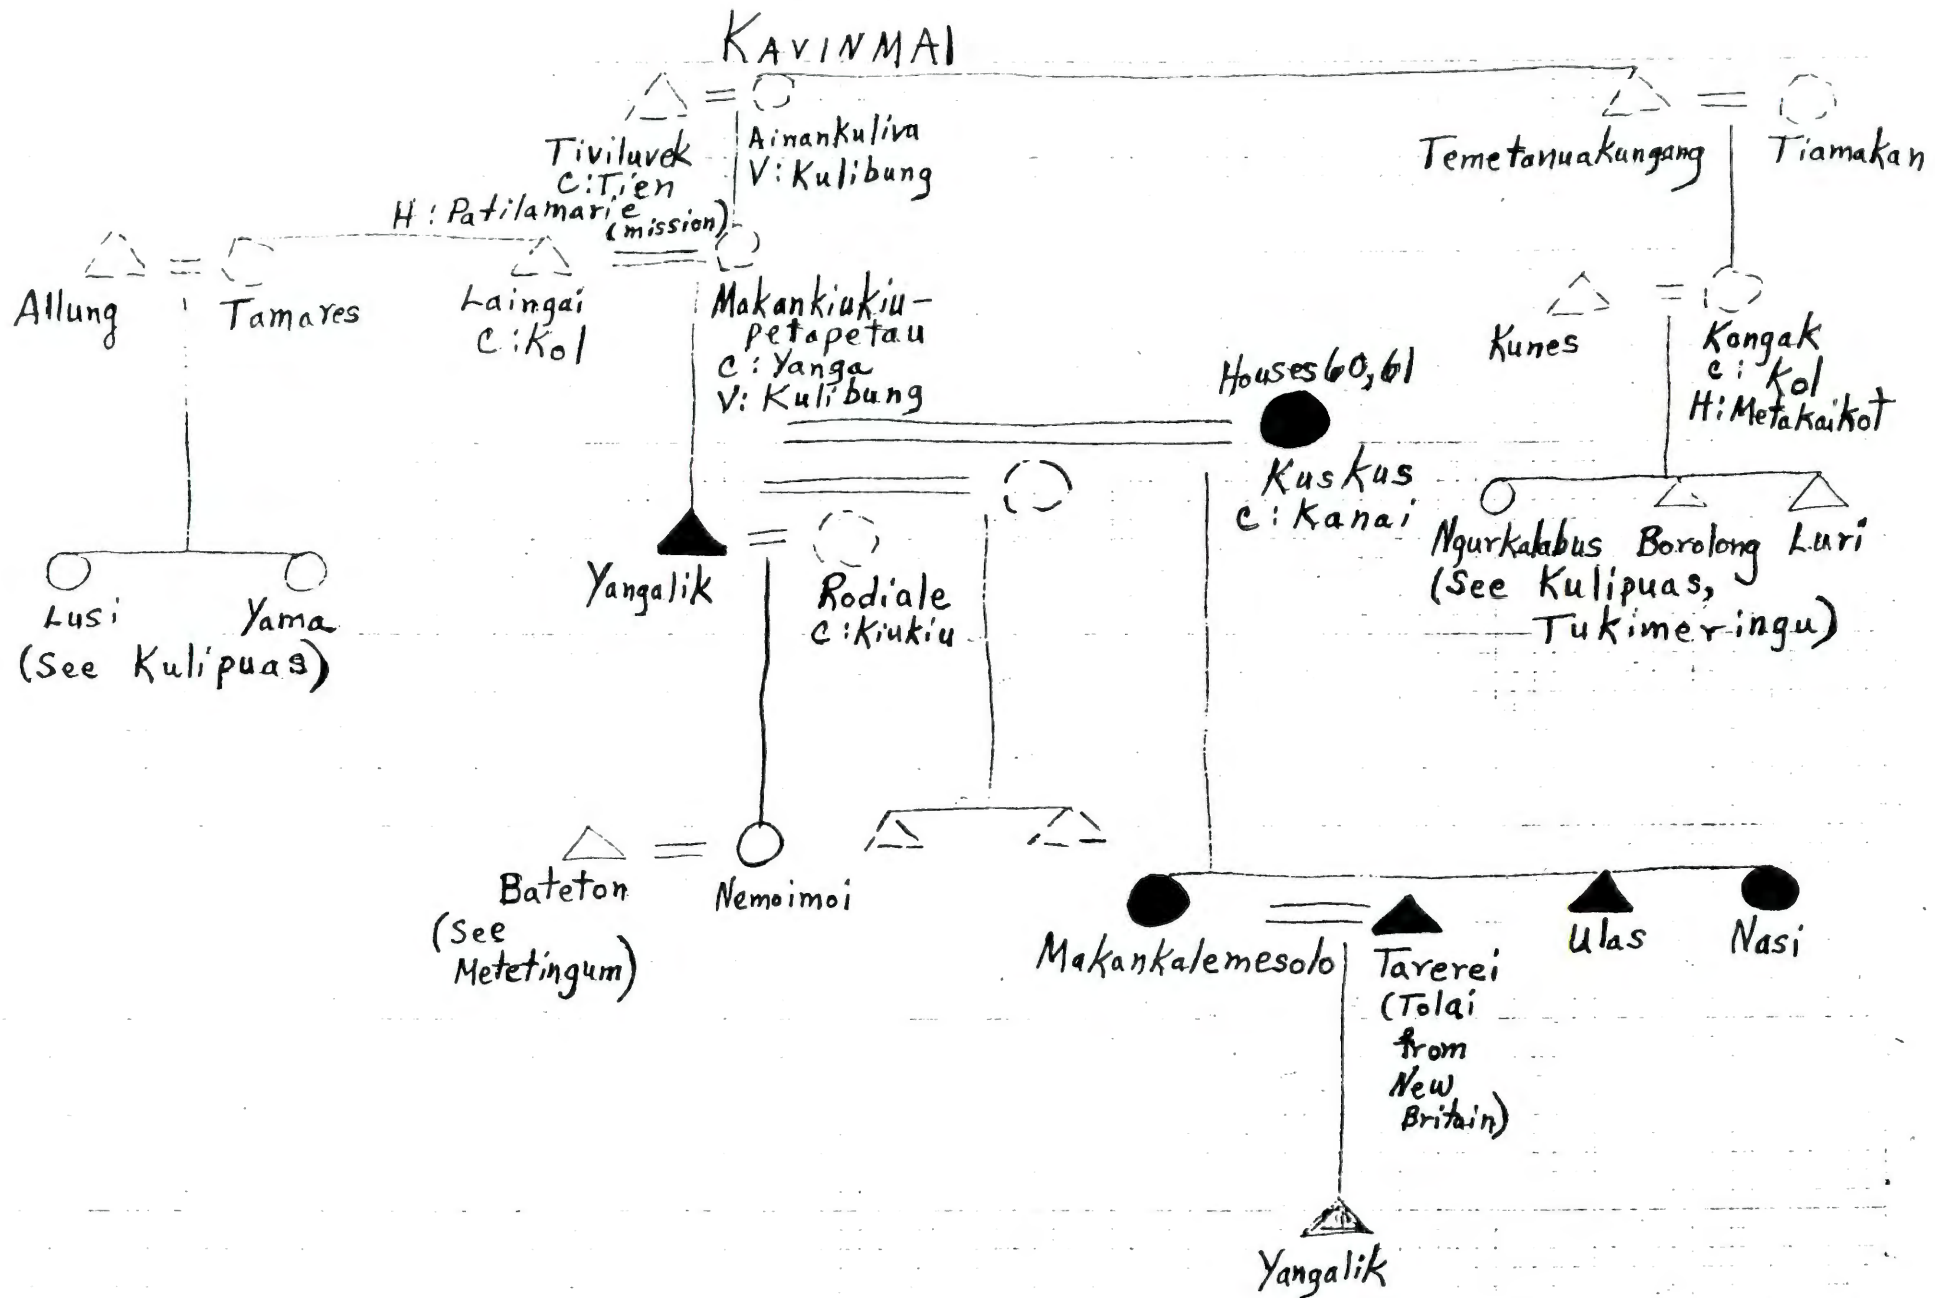 KAVINMAI
Tiviluvek
C:Tien
H:Patilamarie
(mission)
Ainankuliva
V:Kulibung
Temetanuakungang
Tiamakan
Allung
Tamares
Laingai
C:Kol
Makankiukiu-
petapetau
C:Yanga
V:Kulibung
Kunes
Kongak
C:Kol
H:Metakaikot
Houses 60,61
Kuskus
C:Kanai
Ngurkalabus
Borolong
Luri
(See Kulipuas,
Tukimeringu)
Lusi
Yama
(See Kulipuas)
Yangalik
Rodiale
C:Kiukiu
Bateton
(See
Metetingum)
Nemoimoi
Makankalemesolo
Tarerei
(Tolai
from
New
Britain)
Ulas
Nasi
Yangalik